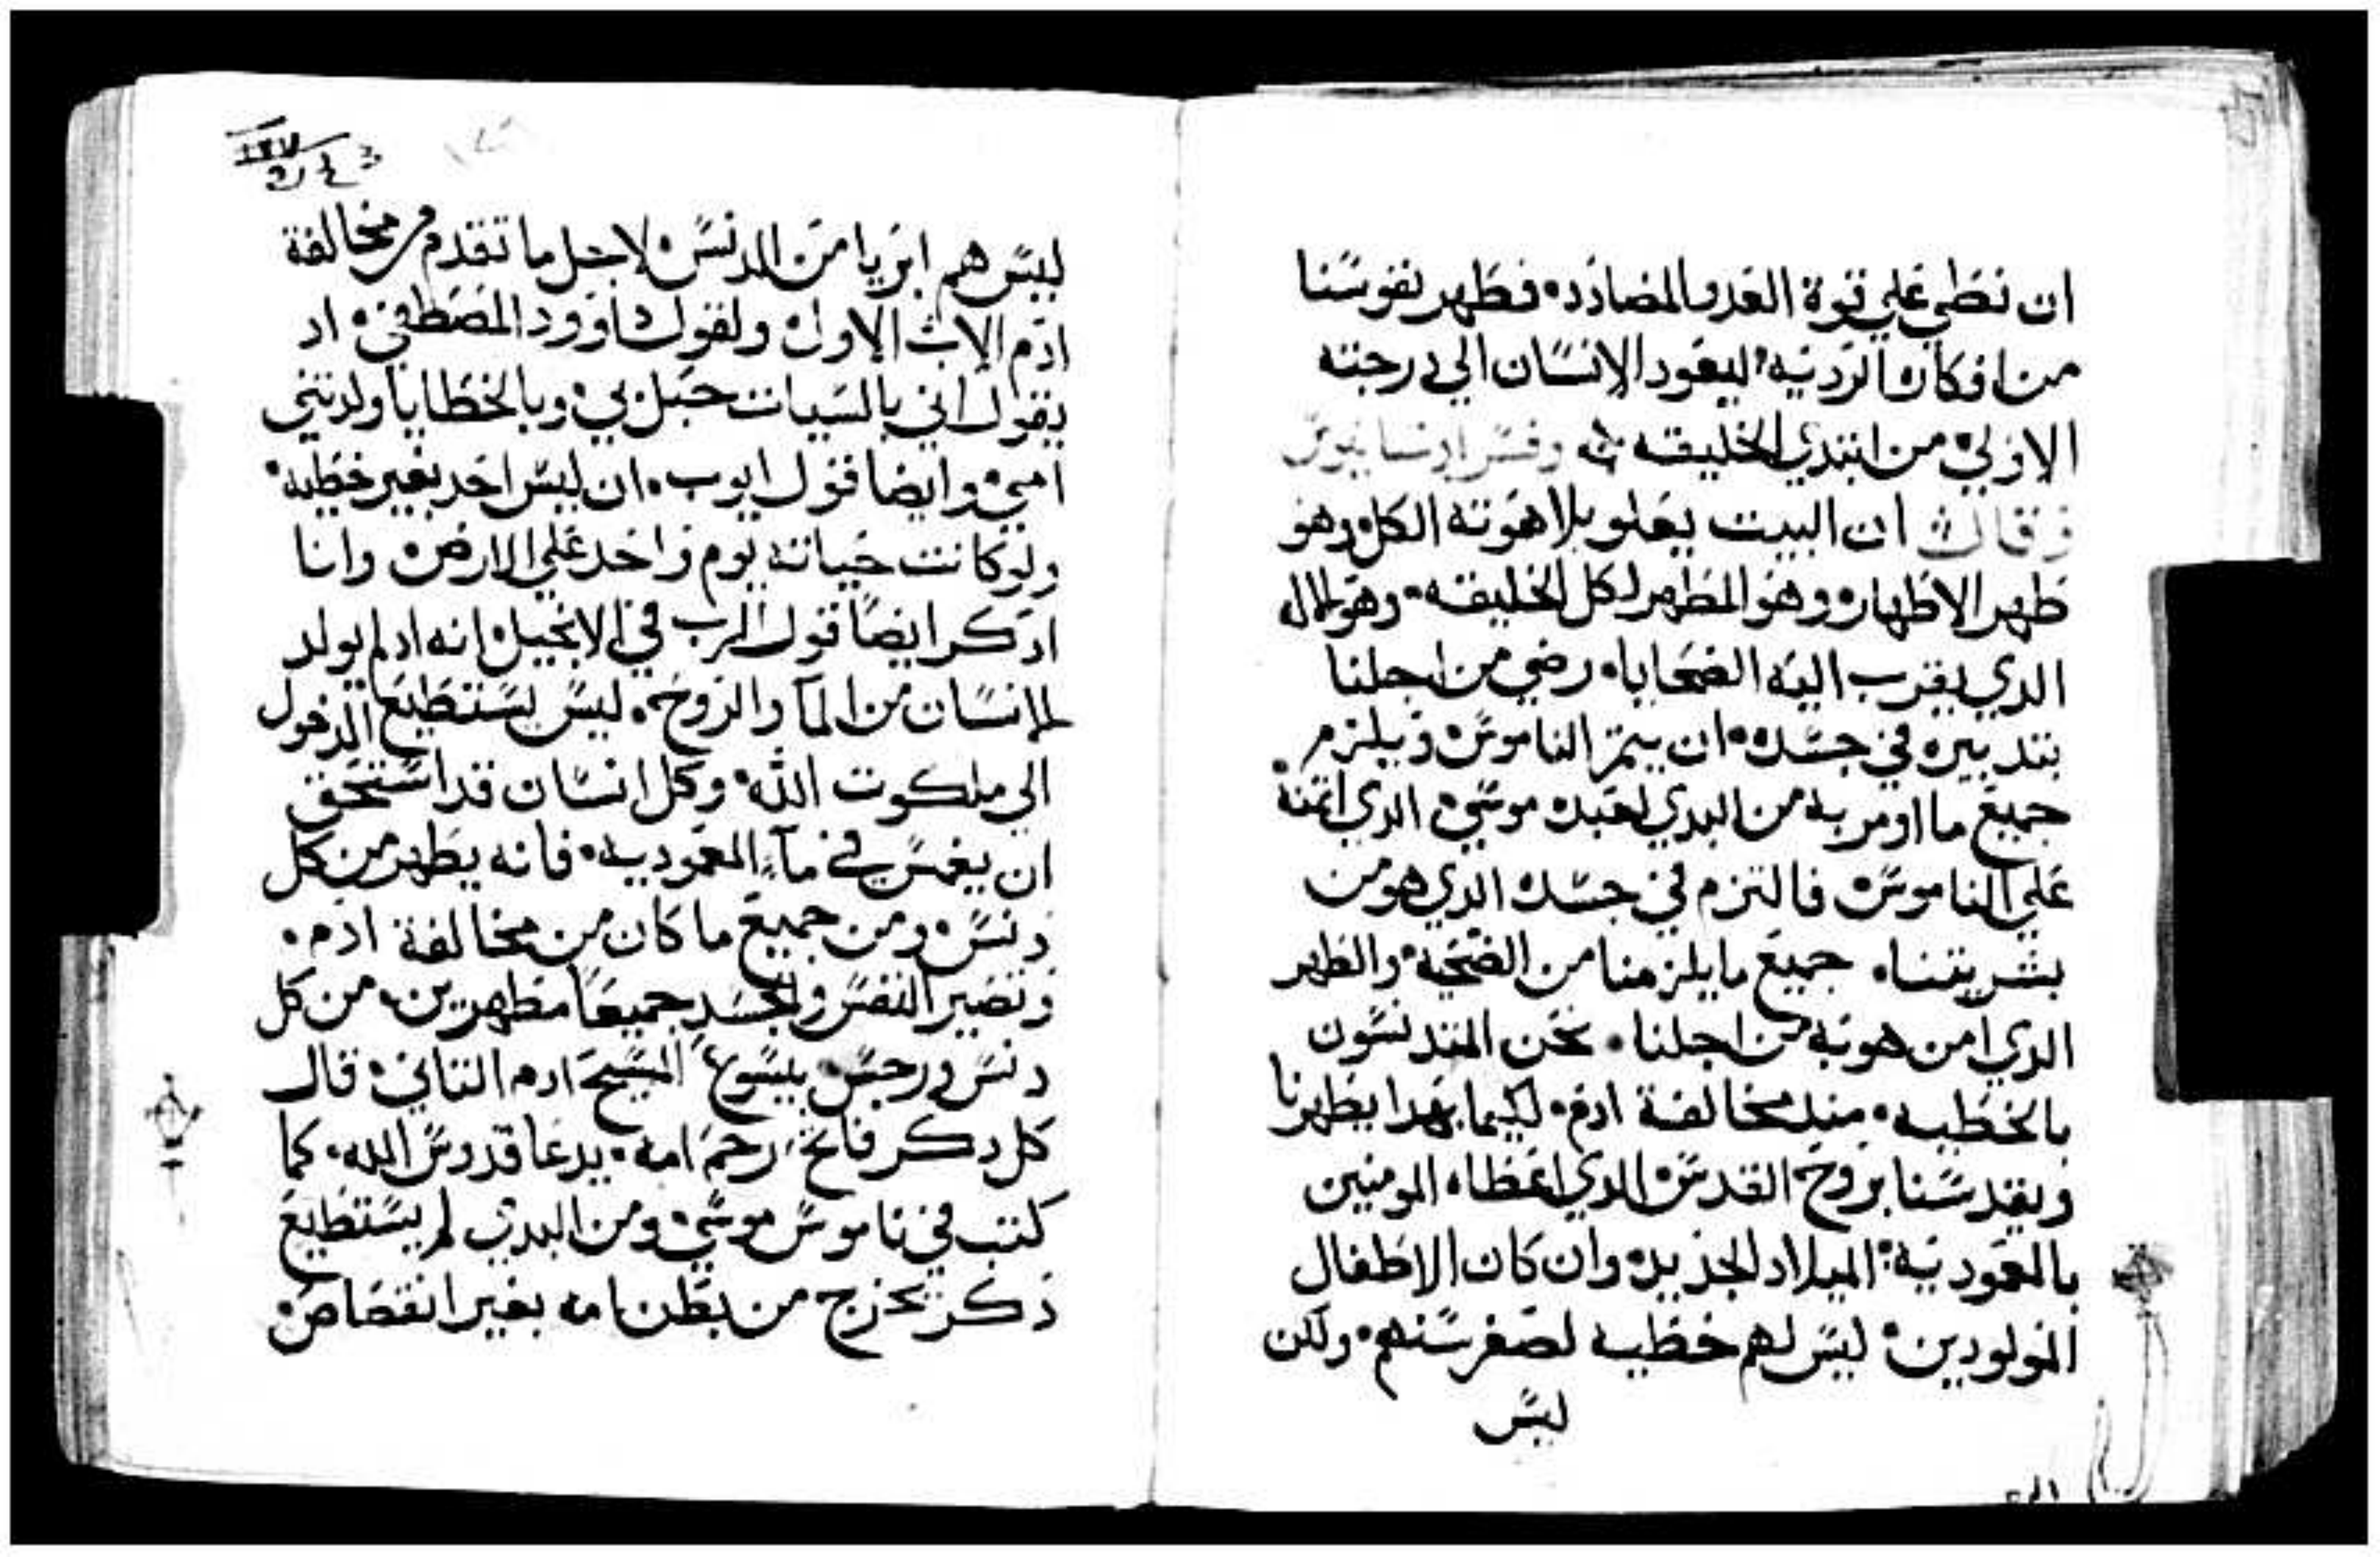 ان نطي علي قوة العدو المضادده فطهر نفوسنا
من افكاره الرديه ليعود الانسان الي درجته
الاولي من ابتدي الخليقه وفسر ايضا
وقال ان البيت يعلو بلاهوته الكل وهو
طهر الاطهار وهو المطهر لكل الخليقه وهو الاله
الدي يقرب اليه الضحايا رضي من اجلنا
بتدبيره في جسده ان يتم الناموس ويلزم
جميع ما اومر به من البدي لعبده موسي الدي اتمنه
علي الناموس فالتزم في جسده الدي هو من
بشريتنا جميع ما يلزمنا من الضحية والطهر
الدي امن هو به من اجلنا نحن المتدنسون
بالخطيه مند مخالفة ادم لكيما بهدا يطهرنا
ويقدسنا بروح القدس الدي اعطاه المومنين
بالمعمودية الميلاد الجديد وان كان الاطفال
المولودين ليس لهم خطيه لصغر سنهم ولكن
ليس
١٢٧
ليس هم ابريا من الدنس لاجل ما تقدم من مخالفة
ادم الاب الاول ولقول داوود المصطفي اد
يقول اني بالسيات حبل بي وبالخطايا ولدتني
امي وايضا قول ايوب ان ليس احد بغير خطيه
ولو كانت حياته يوم واحد علي الارض وانا
ادكر ايضا قول الرب في الانجيل انه اد لم يولد
الانسان من الما والروح ليس يستطيع الدخول
الي ملكوت الله وكل انسان قد استحق
ان يغمس في مآء المعموديه فانه يطهر من كل
دنس ومن جميع ما كان من مخالفة ادم
وتصير النفس والجسد جميعا مطهرين من كل
دنس ورجس بيسوع المسيح ادم التاني قال
كل دكر فاتح رحم امه يدعا قدوس الله كما
كتب في ناموس موسي ومن البدي لم يستطيع
دكر يخرج من بطن امه بغير انقصاص